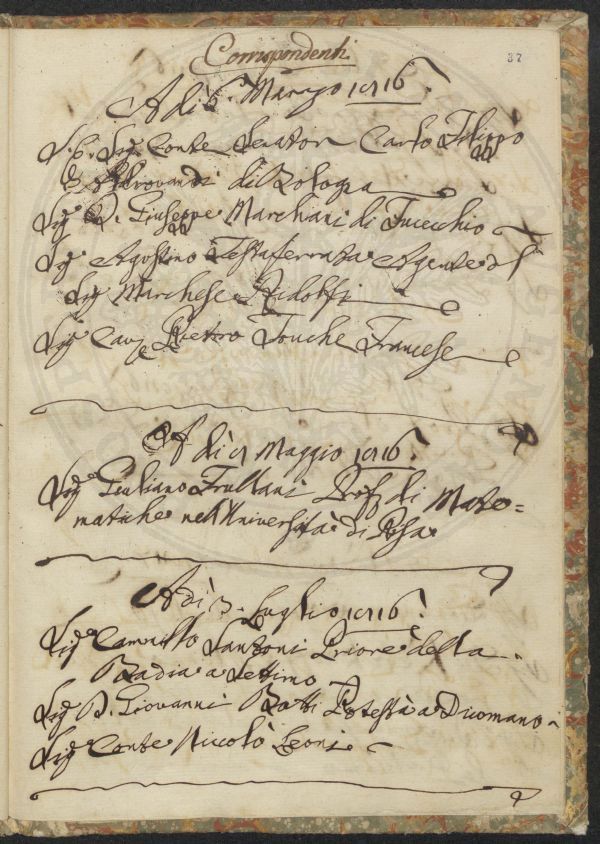 Corrispondenti
37
A dì 6. Marzo 1716.
S.r Sig.e Conte Senator Carlo Filippo
Aldrovandi di Bologna
Sig.e D. Giuseppe Marchiani di Fucecchio
Sig.e Agostino Testaferrata Agente d S.r
Sig.e Marchese Ridolfi
Sig.e Cav.e Pietro Touche Francese
A dì 7 Maggio 1716.
Sig.e Giuliano Frullani Prof. di Mate=
matiche nell'Università di Pisa
A dì 3. Luglio 1716.
Sig.e Cammillo Lanzoni Priore della
Badia a Settimo
Sig.e D. Giovanni Botti Potestà a Dicomano
Sig.e Conte Niccolò Leoni